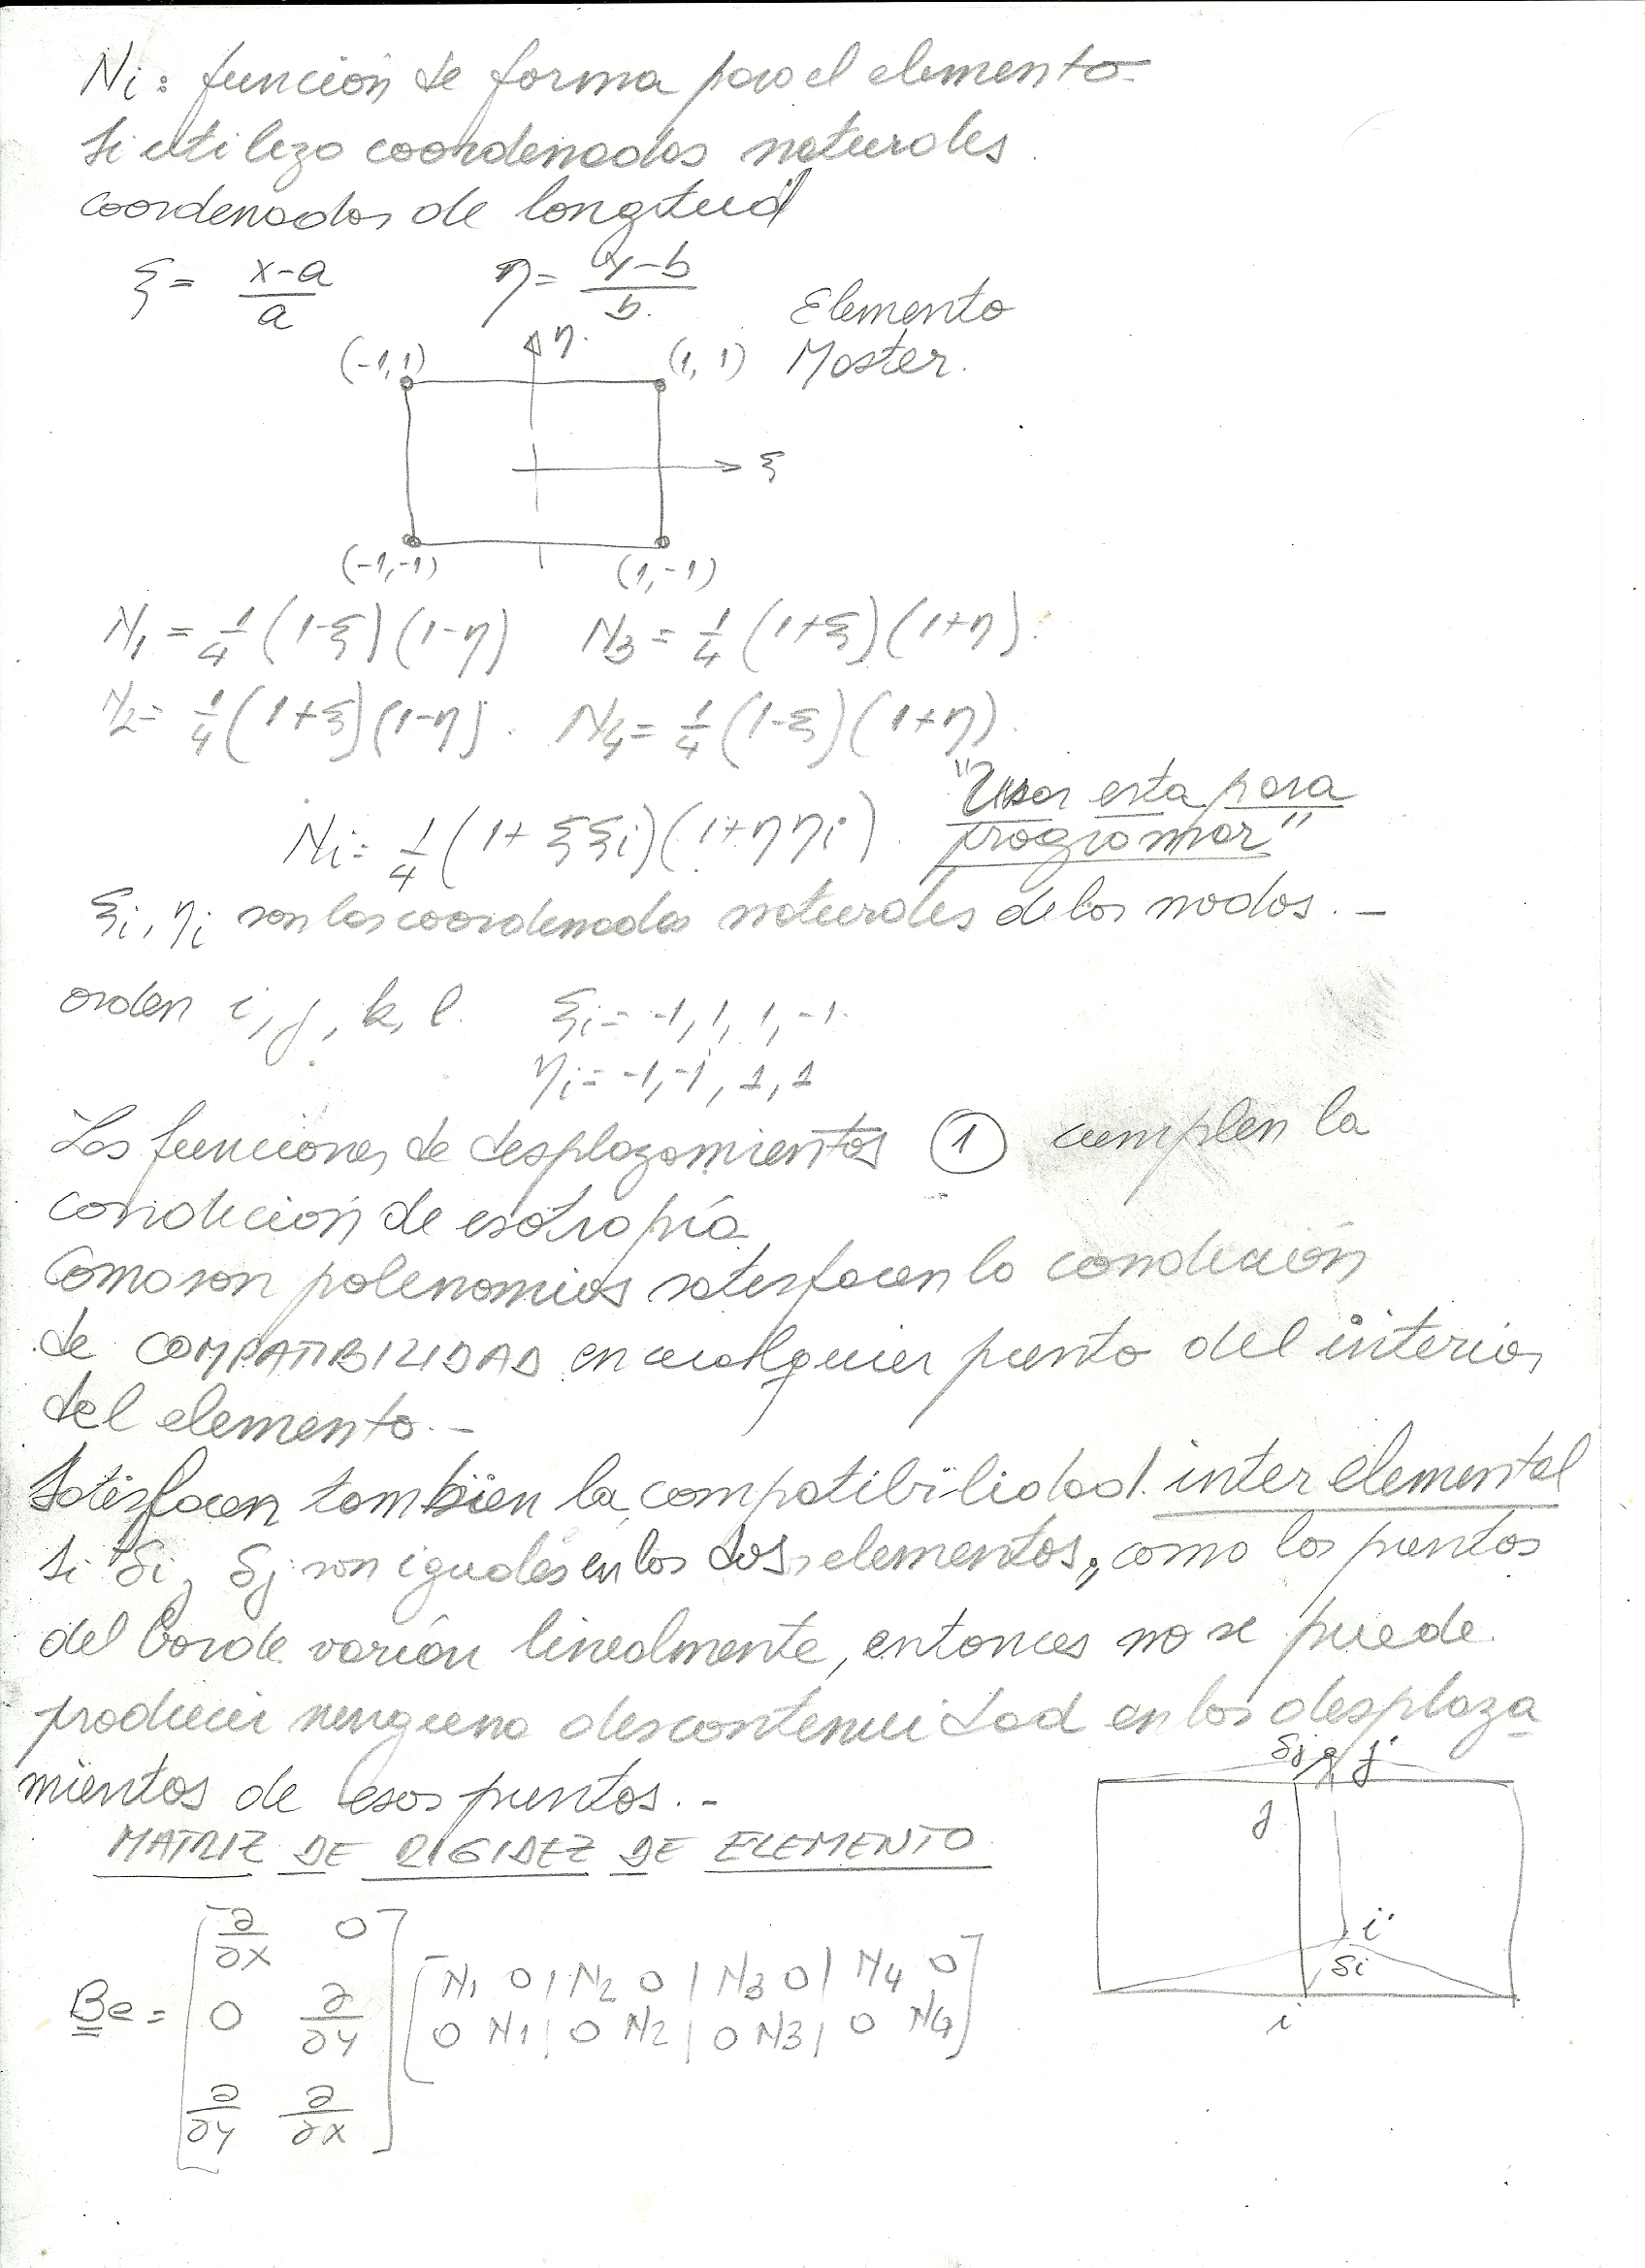 Ni: función de forma para el elemento-
Si utilizo coordenadas naturales
coordenadas de longitud
ξ = (x-a)/a    η = (y-b)/b
Elemento
Master.
(-1,1)  η  (1,1)
ξ
(-1,-1)  (1,-1)
N1 = 1/4 (1-ξ)(1-η)  N3 = 1/4 (1+ξ)(1+η).
N2 = 1/4 (1+ξ)(1-η).  N4 = 1/4 (1-ξ)(1+η).
"Usar esta para
Ni = 1/4 (1+ ξξi)(1+ηηi). programar"
ξi, ηi son las coordenadas naturales de los nodos.-
orden i, j, k, l.  ξi = -1, 1, 1, -1.
ηi = -1, -1, 1, 1
Las funciones de desplazamientos ① cumplen la
condición de isotropía
Como son polinomios satisfacen la condición
de COMPATIBILIDAD en cualquier punto del interior
del elemento.-
Satisfacen también la compatibilidad inter elemental
si δi, δj son iguales en los dos elementos, como los puntos
del borde varían linealmente, entonces no se puede
producir ninguna discontinuidad en los desplaza
mientos de esos puntos.-
δj j'
j
i'
δi
i
MATRIZ DE RIGIDEZ DE ELEMENTO
Be = [∂/∂x 0; 0 ∂/∂y; ∂/∂y ∂/∂x] [N1 0 | N2 0 | N3 0 | N4 0; 0 N1 | 0 N2 | 0 N3 | 0 N4]